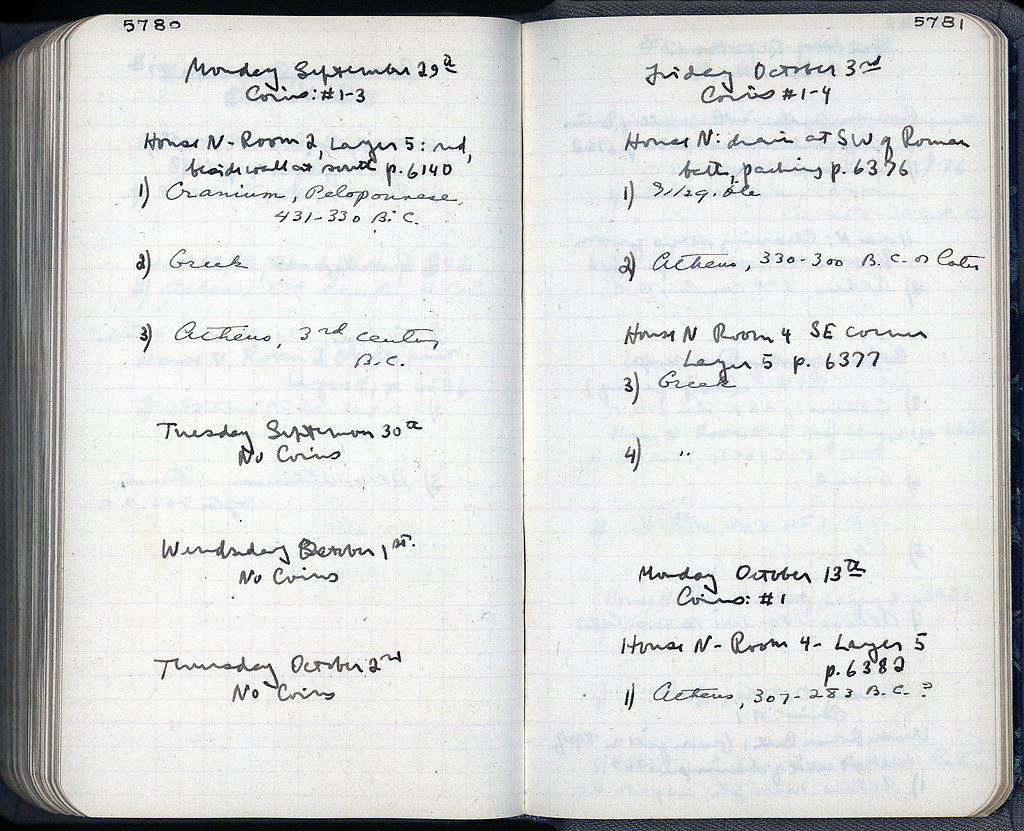 5780
Monday September 29th
Coins: #1-3
House N - Room 2, Layer 5: red,
beside wall at south p. 6140
1) Cranium, Peloponnese,
431-330 B.C.
2) Greek
3) Athens, 3rd century
B.C.
Tuesday September 30th
No Coins
Wednesday October 1st.
No Coins
Thursday October 2nd
No Coins
5781
Friday October 3rd
Coins #1-4
House N: drain at SW of Roman
bath, packing p. 6376
1) Illegible
2) Athens, 330-300 B.C. or later
House N Room 4 SE corner
Layer 5 p. 6377
3) Greek
4) "
Monday October 13th
Coins: #1
House N - Room 4 - Layer 5
p. 6382
1) Athens, 307-283 B.C. ?